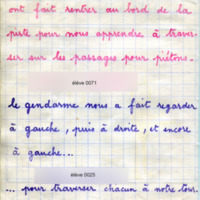 ont fait rentrer au bord de la
piste pour nous apprendre à traver-
ser sur les passages pour piétons.
élève 0071
le gendarme nous a fait regarder
à gauche, puis à droite, et encore
à gauche...
élève 0025
... pour traverser chacun à notre tour.